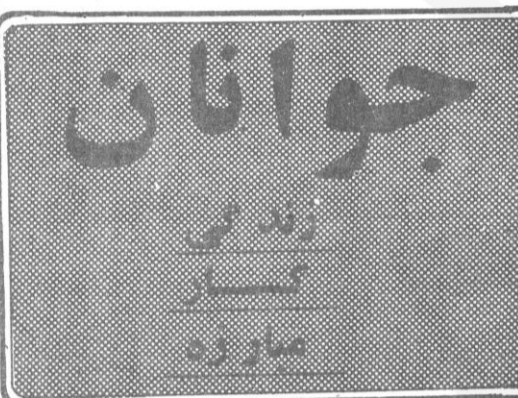 جوانان
زندگی
کار
مبارزه